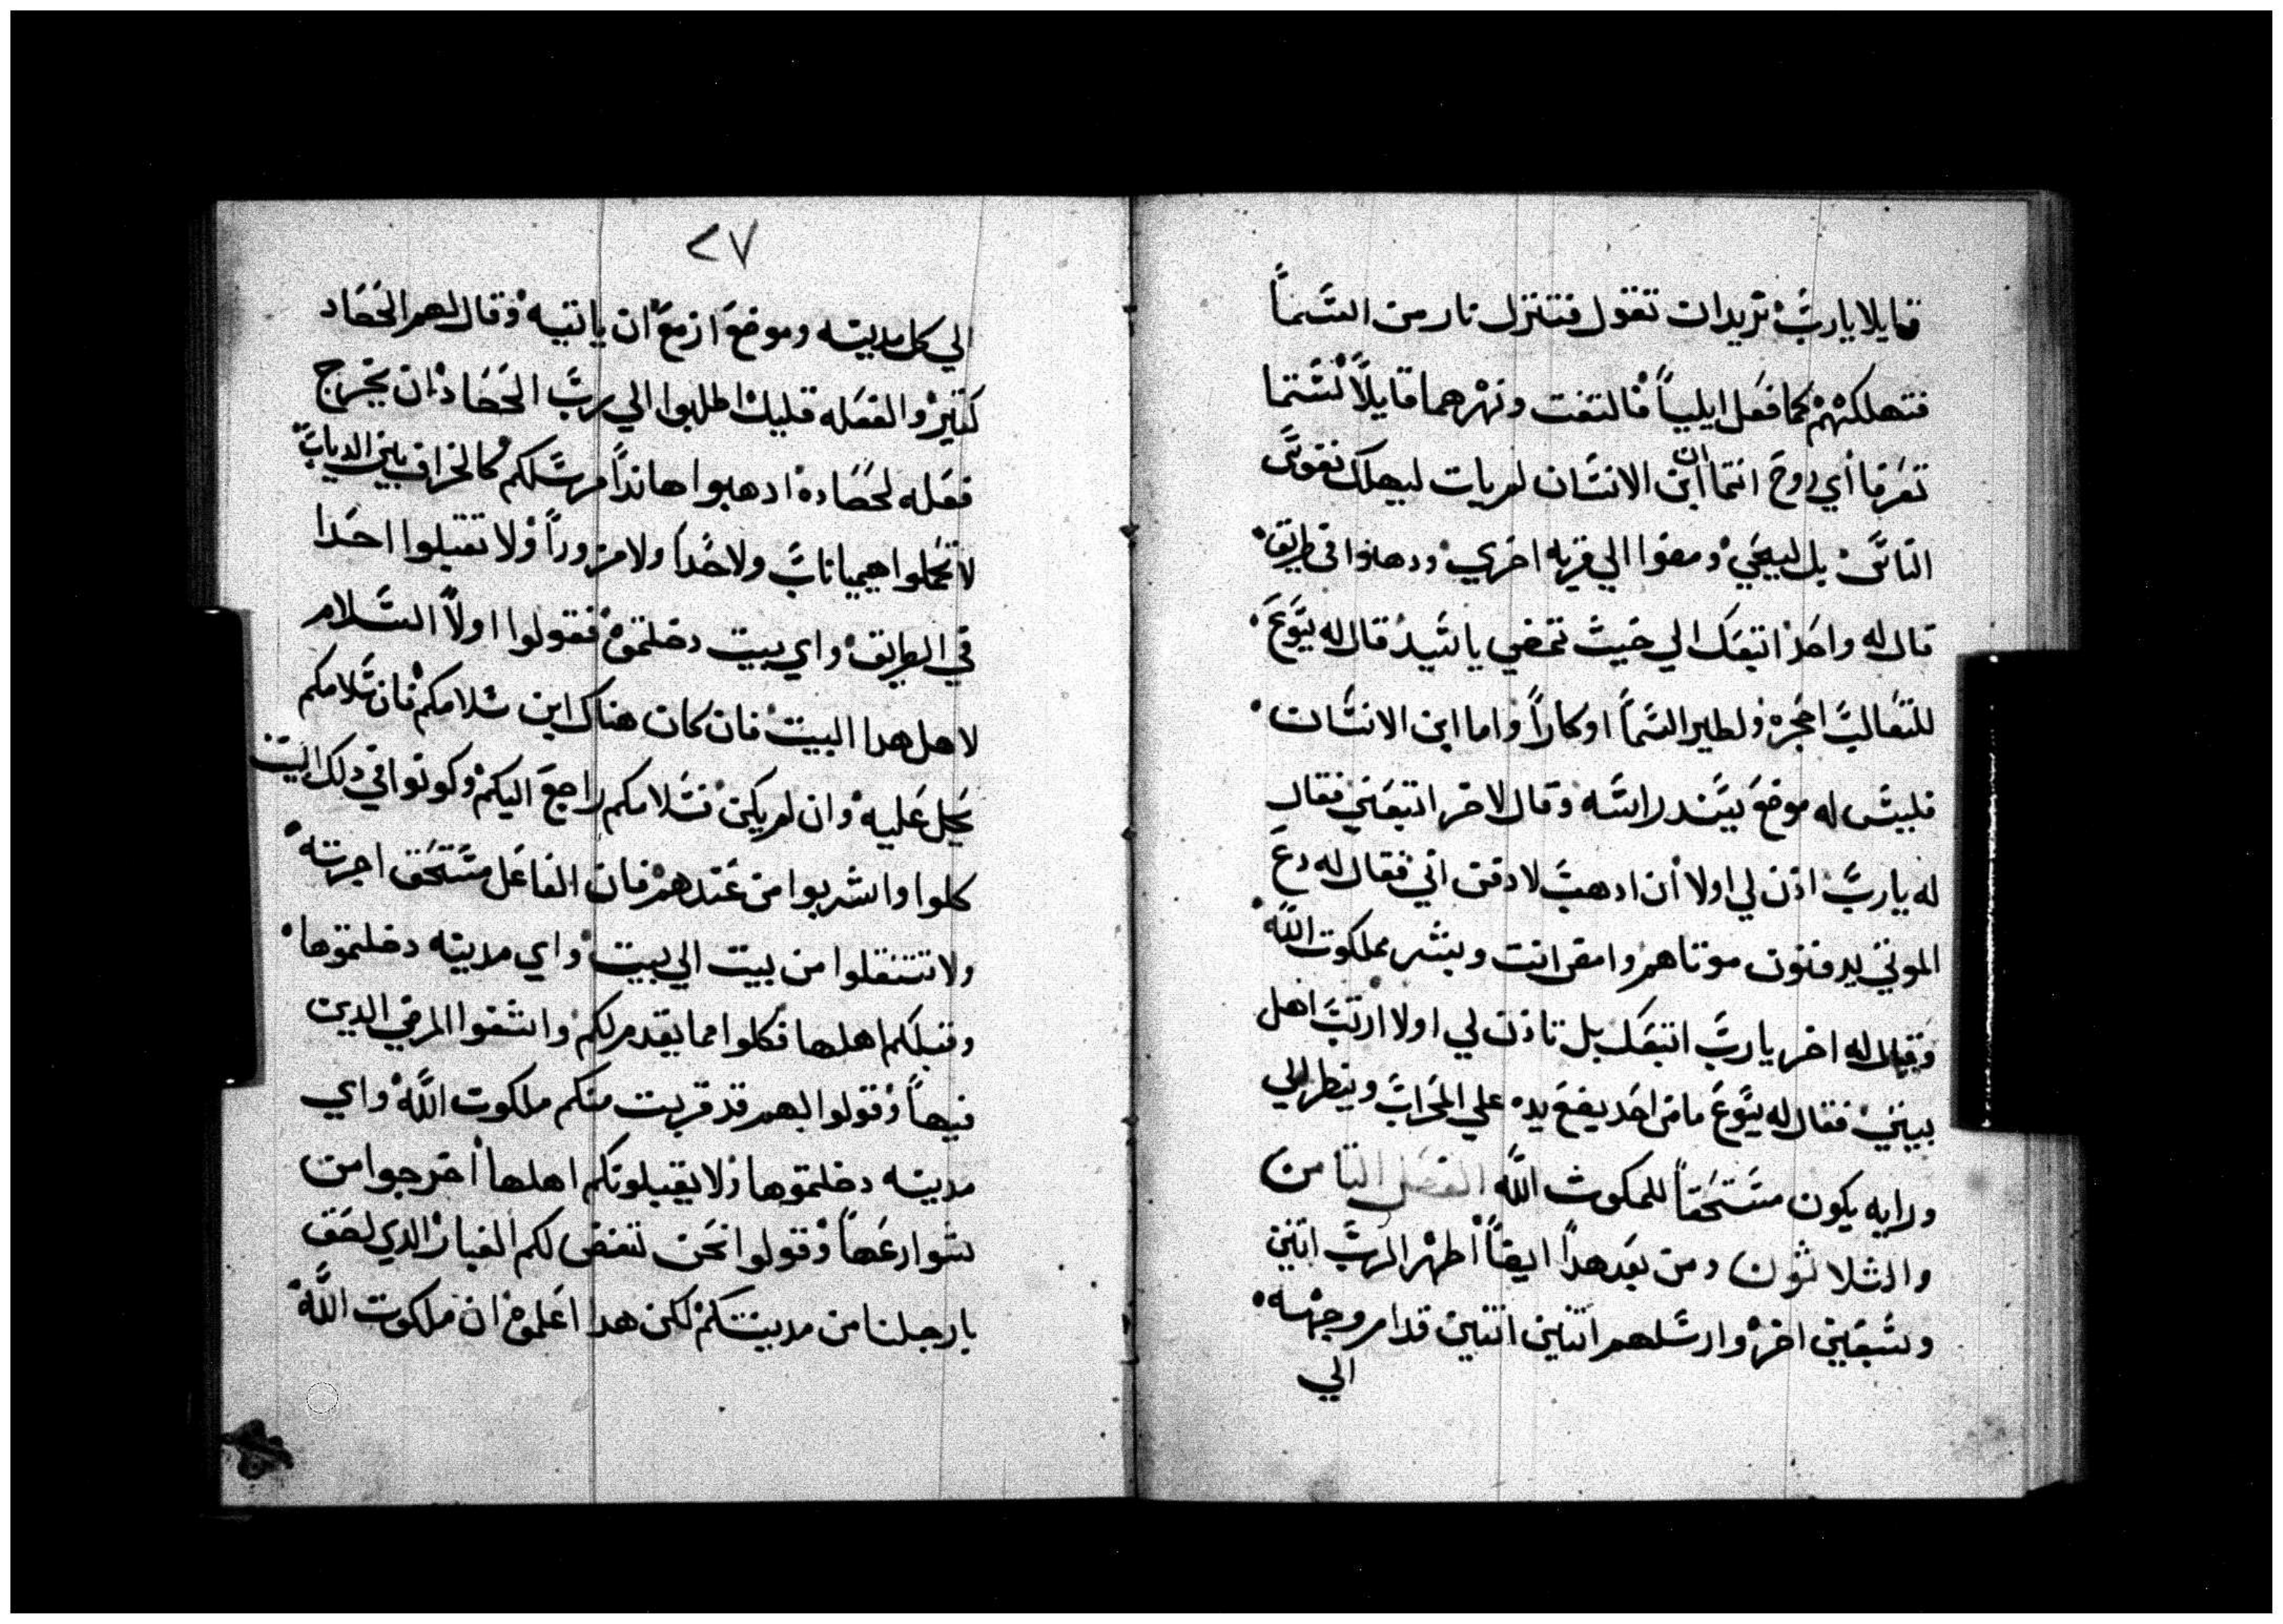 قايلا يارب تريدان تقول فتنزل نار من السما
فتهلكهم كما فعل ايليا فالتفت ونهرهما قايلا لستما
تعرفا اي روح انتما ان ابن الانسان لم يات ليهلك نفوس
الناس بل ليحيي ومضوا الي قريه اخري ودهبوا في طريق
قال له واحد اتبعك الي حيث تمضي يا سيد قال له يسوع
للتعالب احجره ولطير السما اوكارا واما ابن الانسان
فليس له موضع يسند راسه وقال لاخر اتبعني فقال
له يارب ادن لي اولا ان ادهب لادفن ابي فقال له دع
الموتي يدفنون موتاهم وامض انت وبشر بملكوت الله
وقال له اخر يارب اتبعك بل تادن لي اولا ارتب اهل
بيتي فقال له يسوع ما من احد يضع يده علي المحرات وينظر الي
ورايه يكون مستحقا لملكوت الله الفصل التامن
والثلاثون ومن بعد هدا ايضا اظهر الرب اتنين
وسبعين اخر وارسلهم اتنين اتنين قدام وجهه
الي
٢٧
الي كل مدينه وموضع ازمع ان ياتيه وقال لهم الحصاد
كتير والفعله قليل اطلبوا الي رب الحصاد ان يخرج
فعله لحصاده ادهبوا هاندا مرسلكم كالخراف بين الدياب
لا تحملوا هيميانات ولا حدا ولا مزورا ولا تقبلوا احدا
في الطريق واي بيت دخلتموه فقولوا اولا السلام
لاهل هدا البيت فان كان هناك ابن سلامكم فان سلامكم
يحل عليه وان لم يكن فسلامكم راجع اليكم وكونوا في دلك البيت
كلوا واشربوا من عندهم فان الفاعل مستحق اجرته
ولا تتنقلوا من بيت الي بيت واي مدينه دخلتموها
وقبلكم اهلها فكلوا مما يقدم لكم واشفوا المرضي الدين
فيها وقولوا لهم قد قربت منكم ملكوت الله واي
مدينه دخلتموها ولا يقبلونكم اهلها اخرجوا من
شوارعها وقولوا نحن ننفض لكم الغبار الدي لحق
بارجلنا من مدينتكم لكن هدا اعلموه ان ملكوت الله